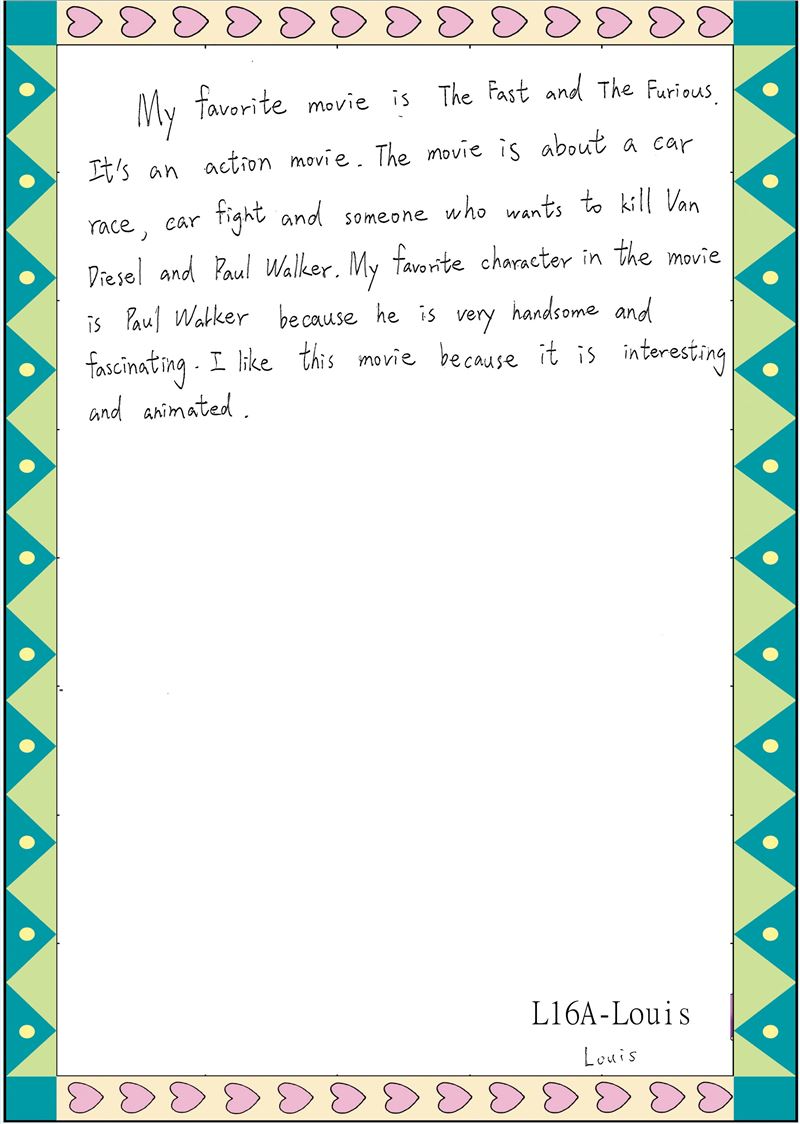 My favorite movie is The Fast and The Furious.
It's an action movie. The movie is about a car
race, car fight and someone who wants to kill Van
Diesel and Paul Walker. My favorite character in the movie
is Paul Walker because he is very handsome and
fascinating. I like this movie because it is interesting
and animated.
L16A-Louis
Louis